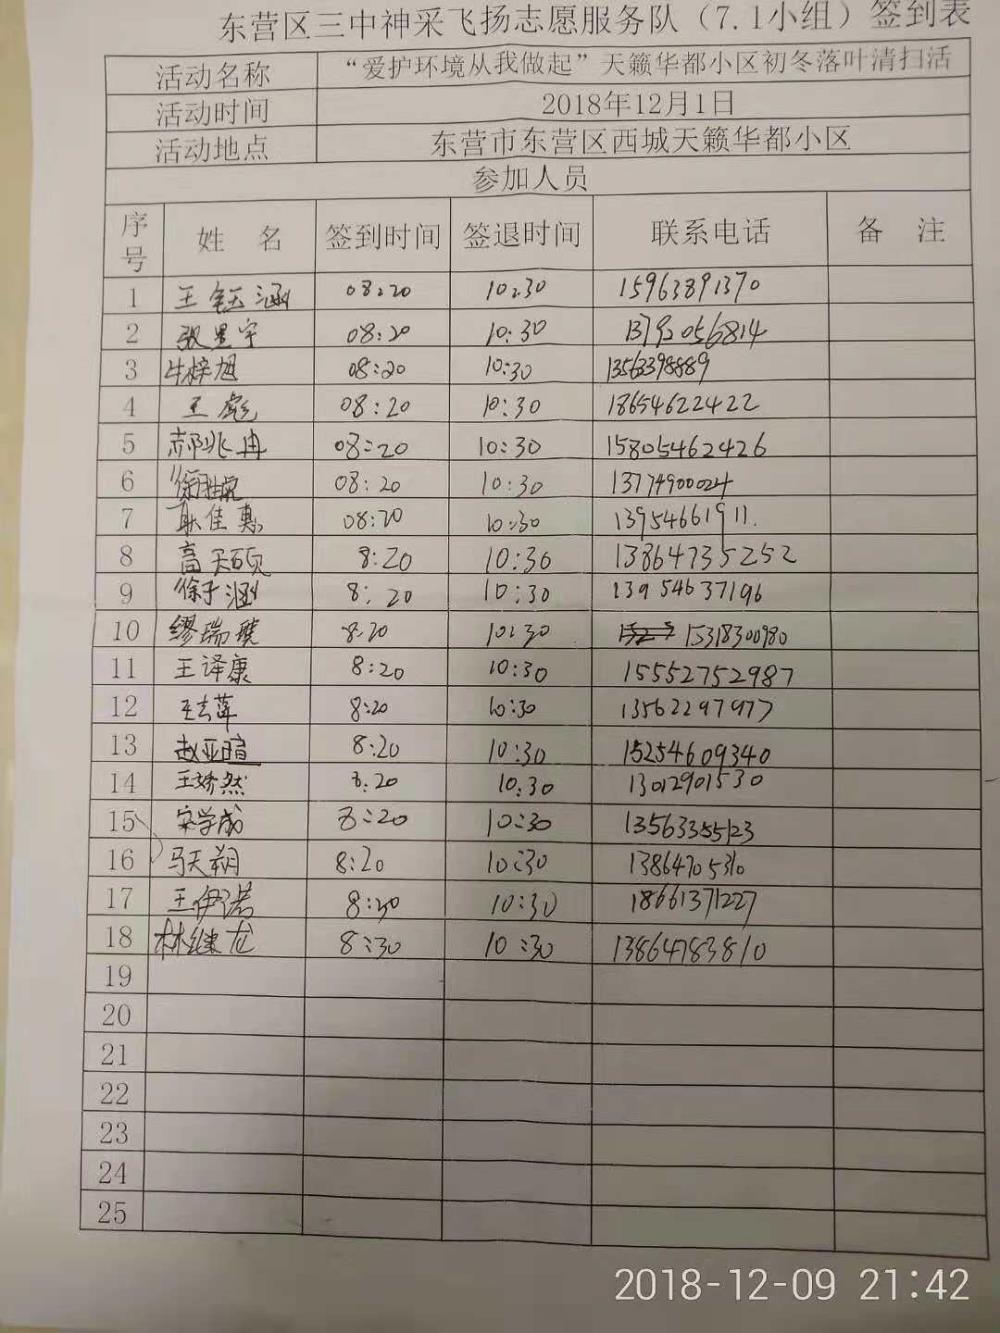 东营区三中神采飞扬志愿服务队（7.1小组）签到表
活动名称 “爱护环境从我做起”天籁华都小区初冬落叶清扫活
活动时间 2018年12月1日
活动地点 东营市东营区西城天籁华都小区
参加人员
序号 姓 名 签到时间 签退时间 联系电话 备 注
1 王钰涵 08:20 10:30 15963891370
2 08:20 10:30
3 牛梓旭 08:20 10:30 13562398889
4 王彪 08:20 10:30 18654622422
5 郝兆冉 08:20 10:30 15805462426
6 08:20 10:30 13774900024
7 耿佳惠 08:20 10:30 13954661911.
8 高天硕 8:20 10:30 13864735252
9 徐子涵 8:20 10:30 13954637196
10 缪瑞璇 8:20 10:30 15318300980
11 王译康 8:20 10:30 15552752987
12 8:20 10:30 13562297977
13 赵亚暄 8:20 10:30 15254609340
14 王娇然 8:20 10:30 13012901530
15 宋学成 8:20 10:30 13563355123
16 马天朔 8:20 10:30
17 王伊诺 8:30 10:30 18661371227
18 林继龙 8:30 10:30 13864783810
19
20
21
22
23
24
25
2018-12-09 21:42